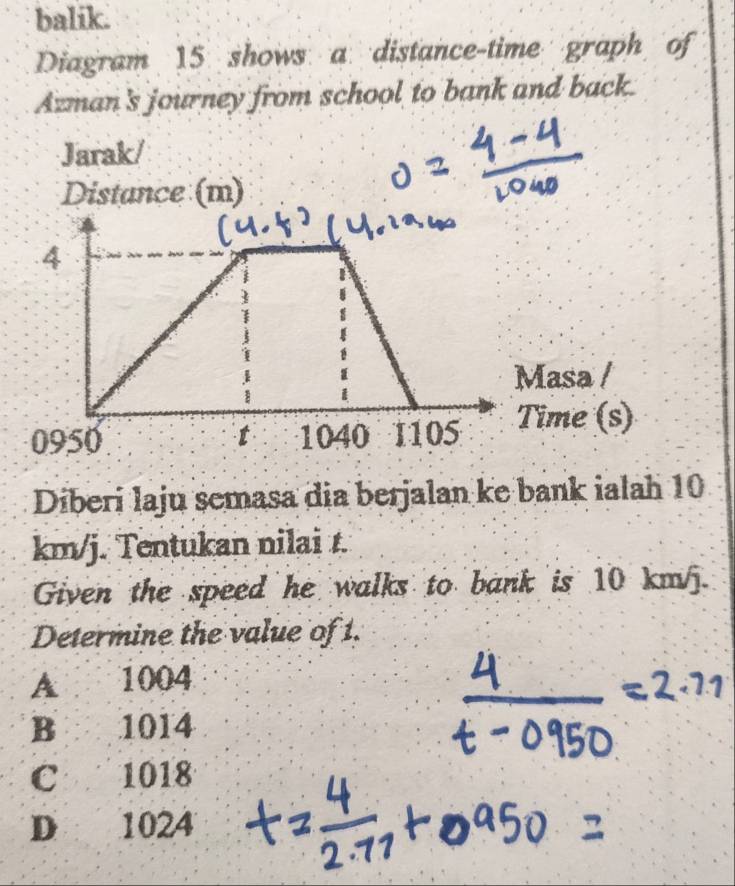 balik.
Diagram 15 shows a distance-time graph of
Azman's journey from school to bank and back.
Jarak/
Distance (m)
0 = 4 - 4
1040
(4.t) (4.1040
4
Masa /
Time (s)
0950 t 1040 1105
Diberi laju semasa dia berjalan ke bank ialah 10
km/j. Tentukan nilai t.
Given the speed he walks to bank is 10 km/j.
Determine the value of t.
A 1004
B 1014
C 1018
D 1024
4
t - 0950
= 2.77
t = 4
2.77
+ 0950 =